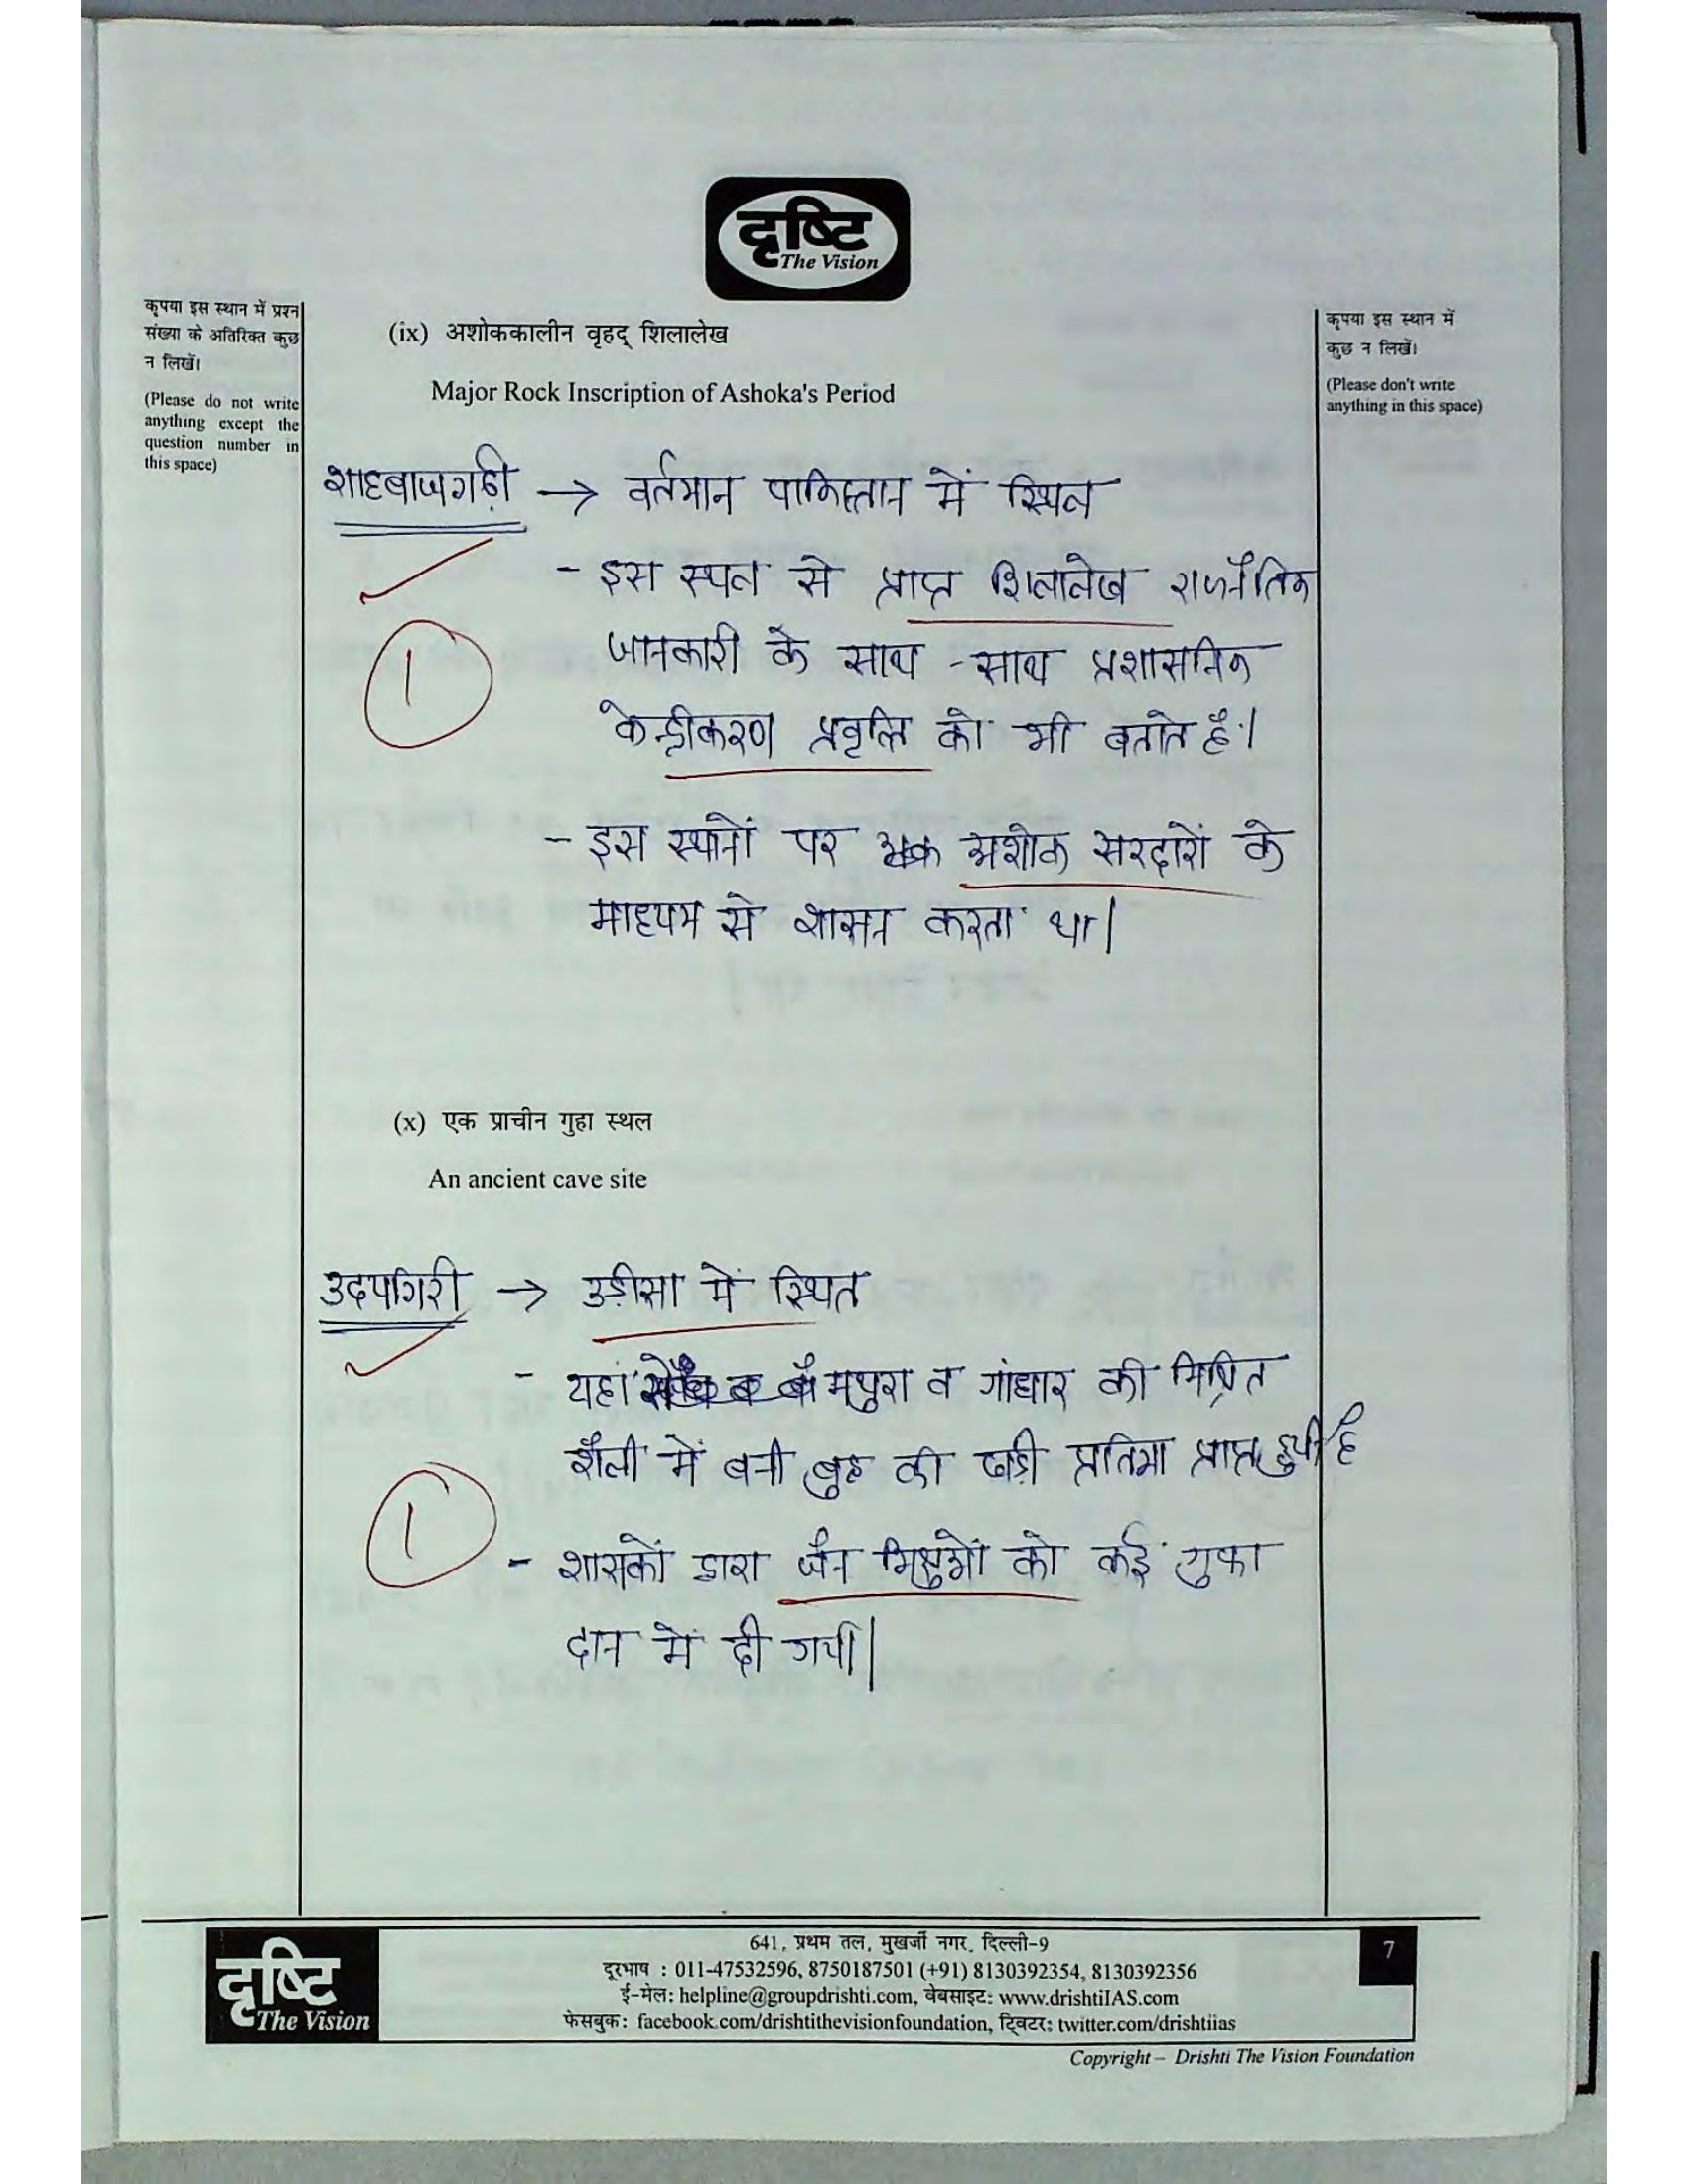 दृष्टि
The Vision
कृपया इस स्थान में प्रश्न
संख्या के अतिरिक्त कुछ
न लिखें।
(Please do not write
anything except the
question number in
this space)
(ix) अशोककालीन वृहद् शिलालेख
Major Rock Inscription of Ashoka's Period
कृपया इस स्थान में
कुछ न लिखें।
(Please don't write
anything in this space)
शाहबाजगढ़ी → वर्तमान पाकिस्तान में स्थित
- इस स्थल से प्राप्त शिलालेख राजनैतिक
जानकारी के साथ - साथ प्रशासनिक
केन्द्रीकरण प्रवृत्ति को भी बताते है।
1
- इस स्थानों पर अशोक सरदारों के
माध्यम से शासन करता था।
(x) एक प्राचीन गुहा स्थल
An ancient cave site
उदयगिरी → उड़ीसा में स्थित
- यहां मथुरा व गांधार की मिश्रित
शैली में बनी बुद्ध की खड़ी प्रतिमा प्राप्त हुयी है
1
- शासकों द्वारा जैन भिक्षुओं को कई गुफा
दान में दी गयी।
दृष्टि
The Vision
641, प्रथम तल, मुखर्जी नगर, दिल्ली-9
दूरभाष : 011-47532596, 8750187501 (+91) 8130392354, 8130392356
ई-मेल: helpline@groupdrishti.com, वेबसाइट: www.drishtiIAS.com
फेसबुक: facebook.com/drishtithevisionfoundation, ट्विटर: twitter.com/drishtiias
7
Copyright – Drishti The Vision Foundation